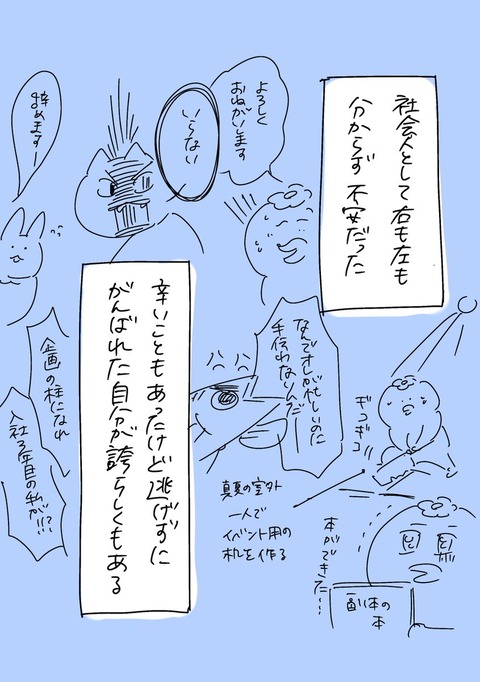 社会人として右も左も
分からず不安だった
よろしく
おねがいします
いらない
辞めますー
辛いこともあったけど逃げずに
がんばれた自分が誇らしくもある
なんでオレが忙しいのに
手伝わないんだ
ギコギコ
真夏の室外
一人で
イベント用の
机を作る
企画の柱になれ
入社3年目の私が!?
本ができた…